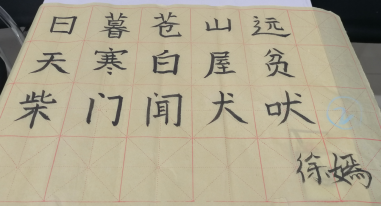 日暮苍山远
天寒白屋贫
柴门闻犬吠
徐嫣